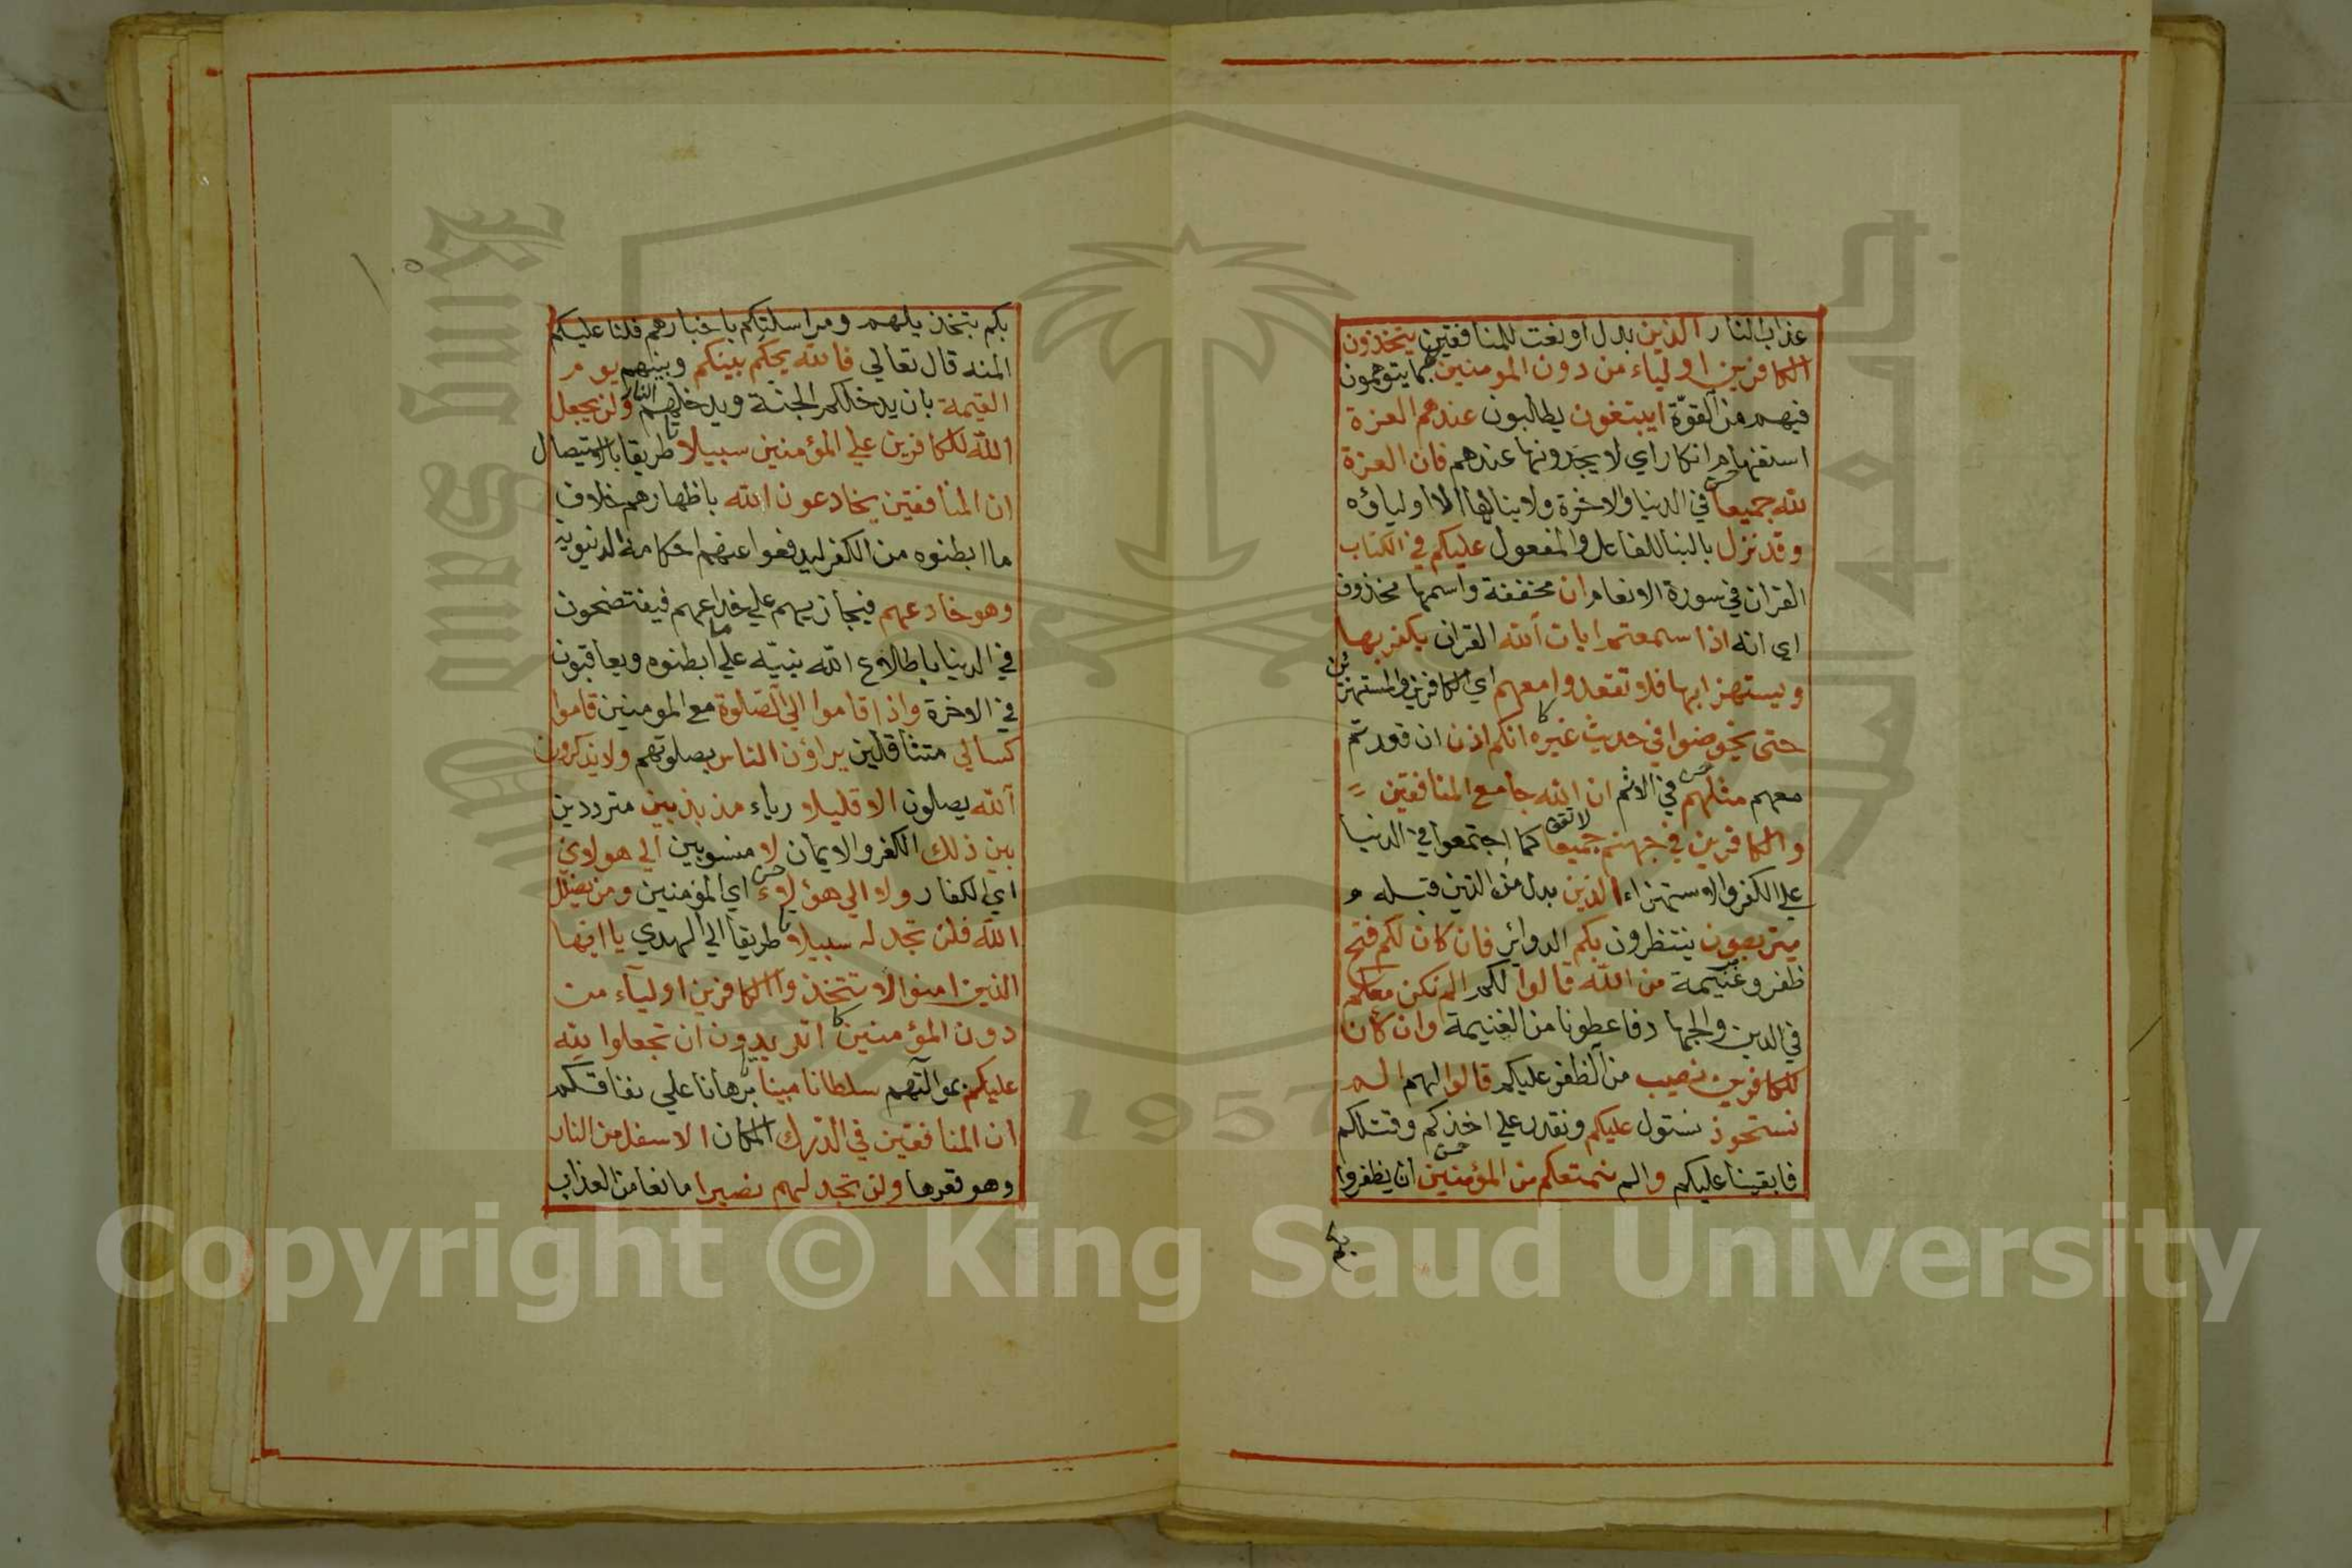 عذاب النار الذين بدل او نعت للمنافقين يتخذون
الكافرين اولياء من دون المومنين لما يتوهمون
فيهم من القوّة ايبتغون يطالبون عندهم العزة
استفهام انكار اي لا يجدونها عندهم فان العزة
لله جميعا في الدنيا والاخرة ولا ينالها الا اولياؤه
وقد نزل بالبنا للفاعل والمفعول عليكم في الكتاب
القران في سورة الانعام ان مخففة واسمها محذوف
اي انه اذا سمعتم ايات الله القران يكفر بها
ويستهزا بها فلا تقعدوا معهم اي الكافرين والمستهزئين
حتى يخوضوا في حديث غيره انكم اذن ان قعدتم
معهم مثلهم في الاثم ان الله جامع المنافقين
والكافرين في جهنم جميعا كما اجتمعوا في الدنيا
علي الكفر والاستهزاء الذين بدل من الذين قبله
يتربصون ينتظرون بكم الدوائر فان كان لكم فتح
ظفر وغنيمة من الله قالوا لكم الم نكن معكم
في الدين والجهاد فاعطونا من الغنيمة وان كان
للكافرين نصيب من الظفر عليكم قالوا لهم الم
نستحوذ نستول عليكم ونقدر علي اخذكم وقتلكم
فابقينا عليكم والم نمنعكم من المؤمنين ان يظفروا
بكم
بكم بتخذيلهم ومراسلتكم باخبارهم فلنا عليكم
المنه قال تعالي فالله يحكم بينكم وبينهم يوم
القيمة بان يدخلكم الجنة ويدخلهم النار ولن يجعل
الله للكافرين علي المؤمنين سبيلا طريقا بالاستيصال
ان المنافقين يخادعون الله باظهارهم خلاف
ما ابطنوه من الكفر ليدفعوا عنهم احكامه الدنيويه
وهو خادعهم فيجازيهم علي خداعهم فيفتضحون
في الدنيا باطلاع الله نبيّه علي ما ابطنوه ويعاقبون
في الاخرة واذا قاموا الي الصّلوة مع المومنين قاموا
كسالي متثاقلين يراؤن الناس بصلوتهم ولا يذكرون
الله يصلون الا قليلا رياء مذبذبين مترددين
بين ذلك الكفر والايمان لا منسوبين الي هولاي
اي الكفار ولا الي هؤلاء اي المؤمنين ومن يضلل
الله فلن تجد له سبيلا طريقا الي الهدي يا ايها
الذين امنوا لا تتخذوا الكافرين اولياء من
دون المؤمنين اتريدون ان تجعلوا لله
عليكم بموالاتهم سلطانا مبينا برهانا علي نفاقكم
ان المنافقين في الدّرك المكان الاسفل من النار
وهو قعرها ولن تجد لهم نصيرا مانعا من العذاب
1957
Copyright © King Saud University